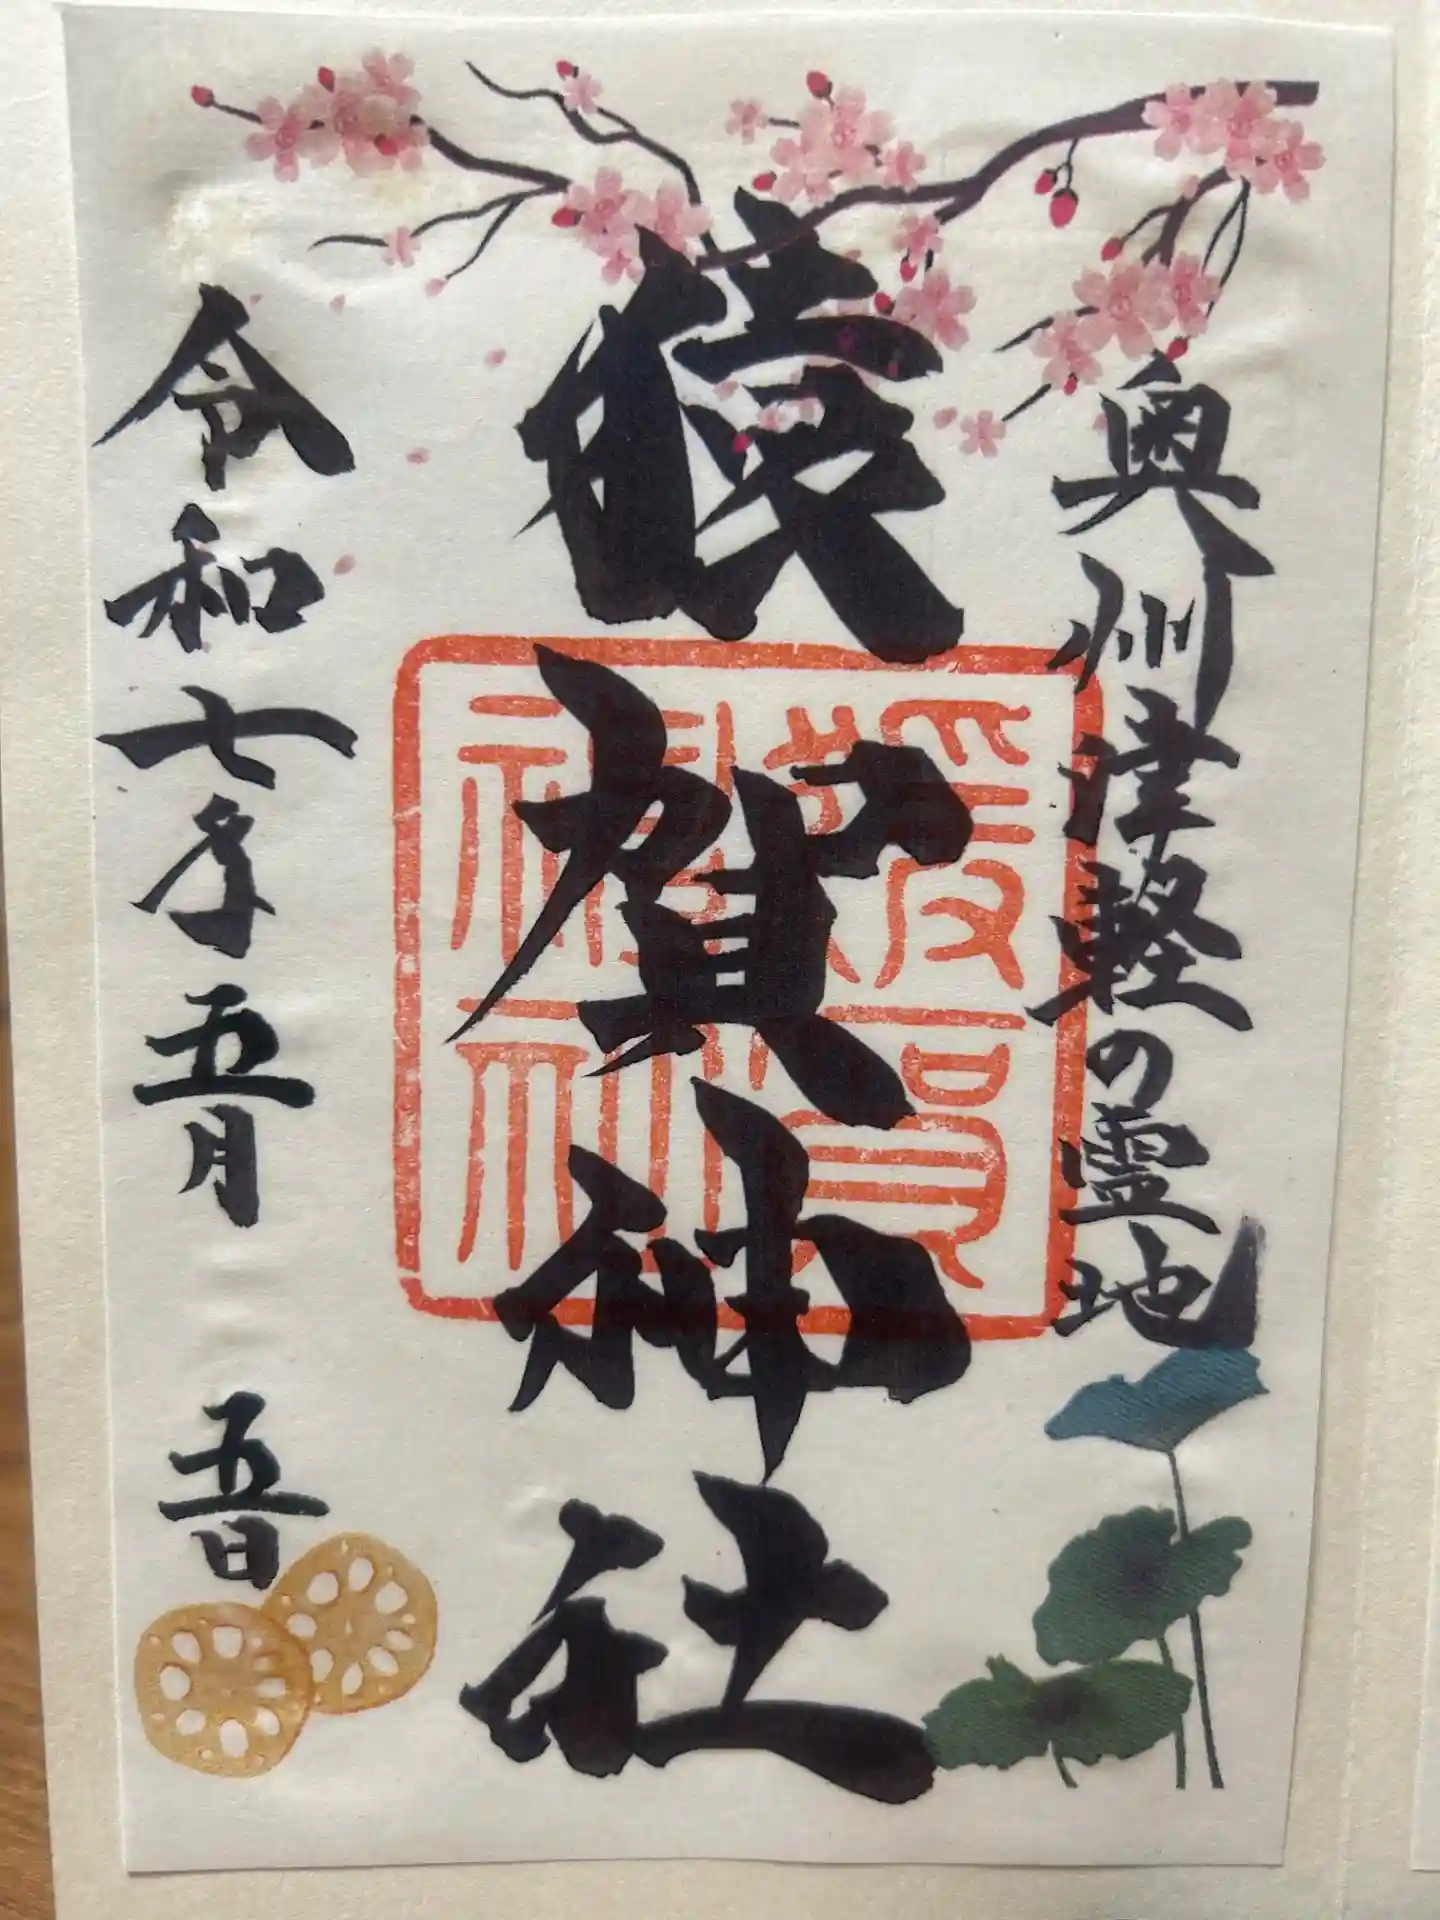 奥州津軽の霊地
猿賀神社
令和七年五月五日
猨賀
神社